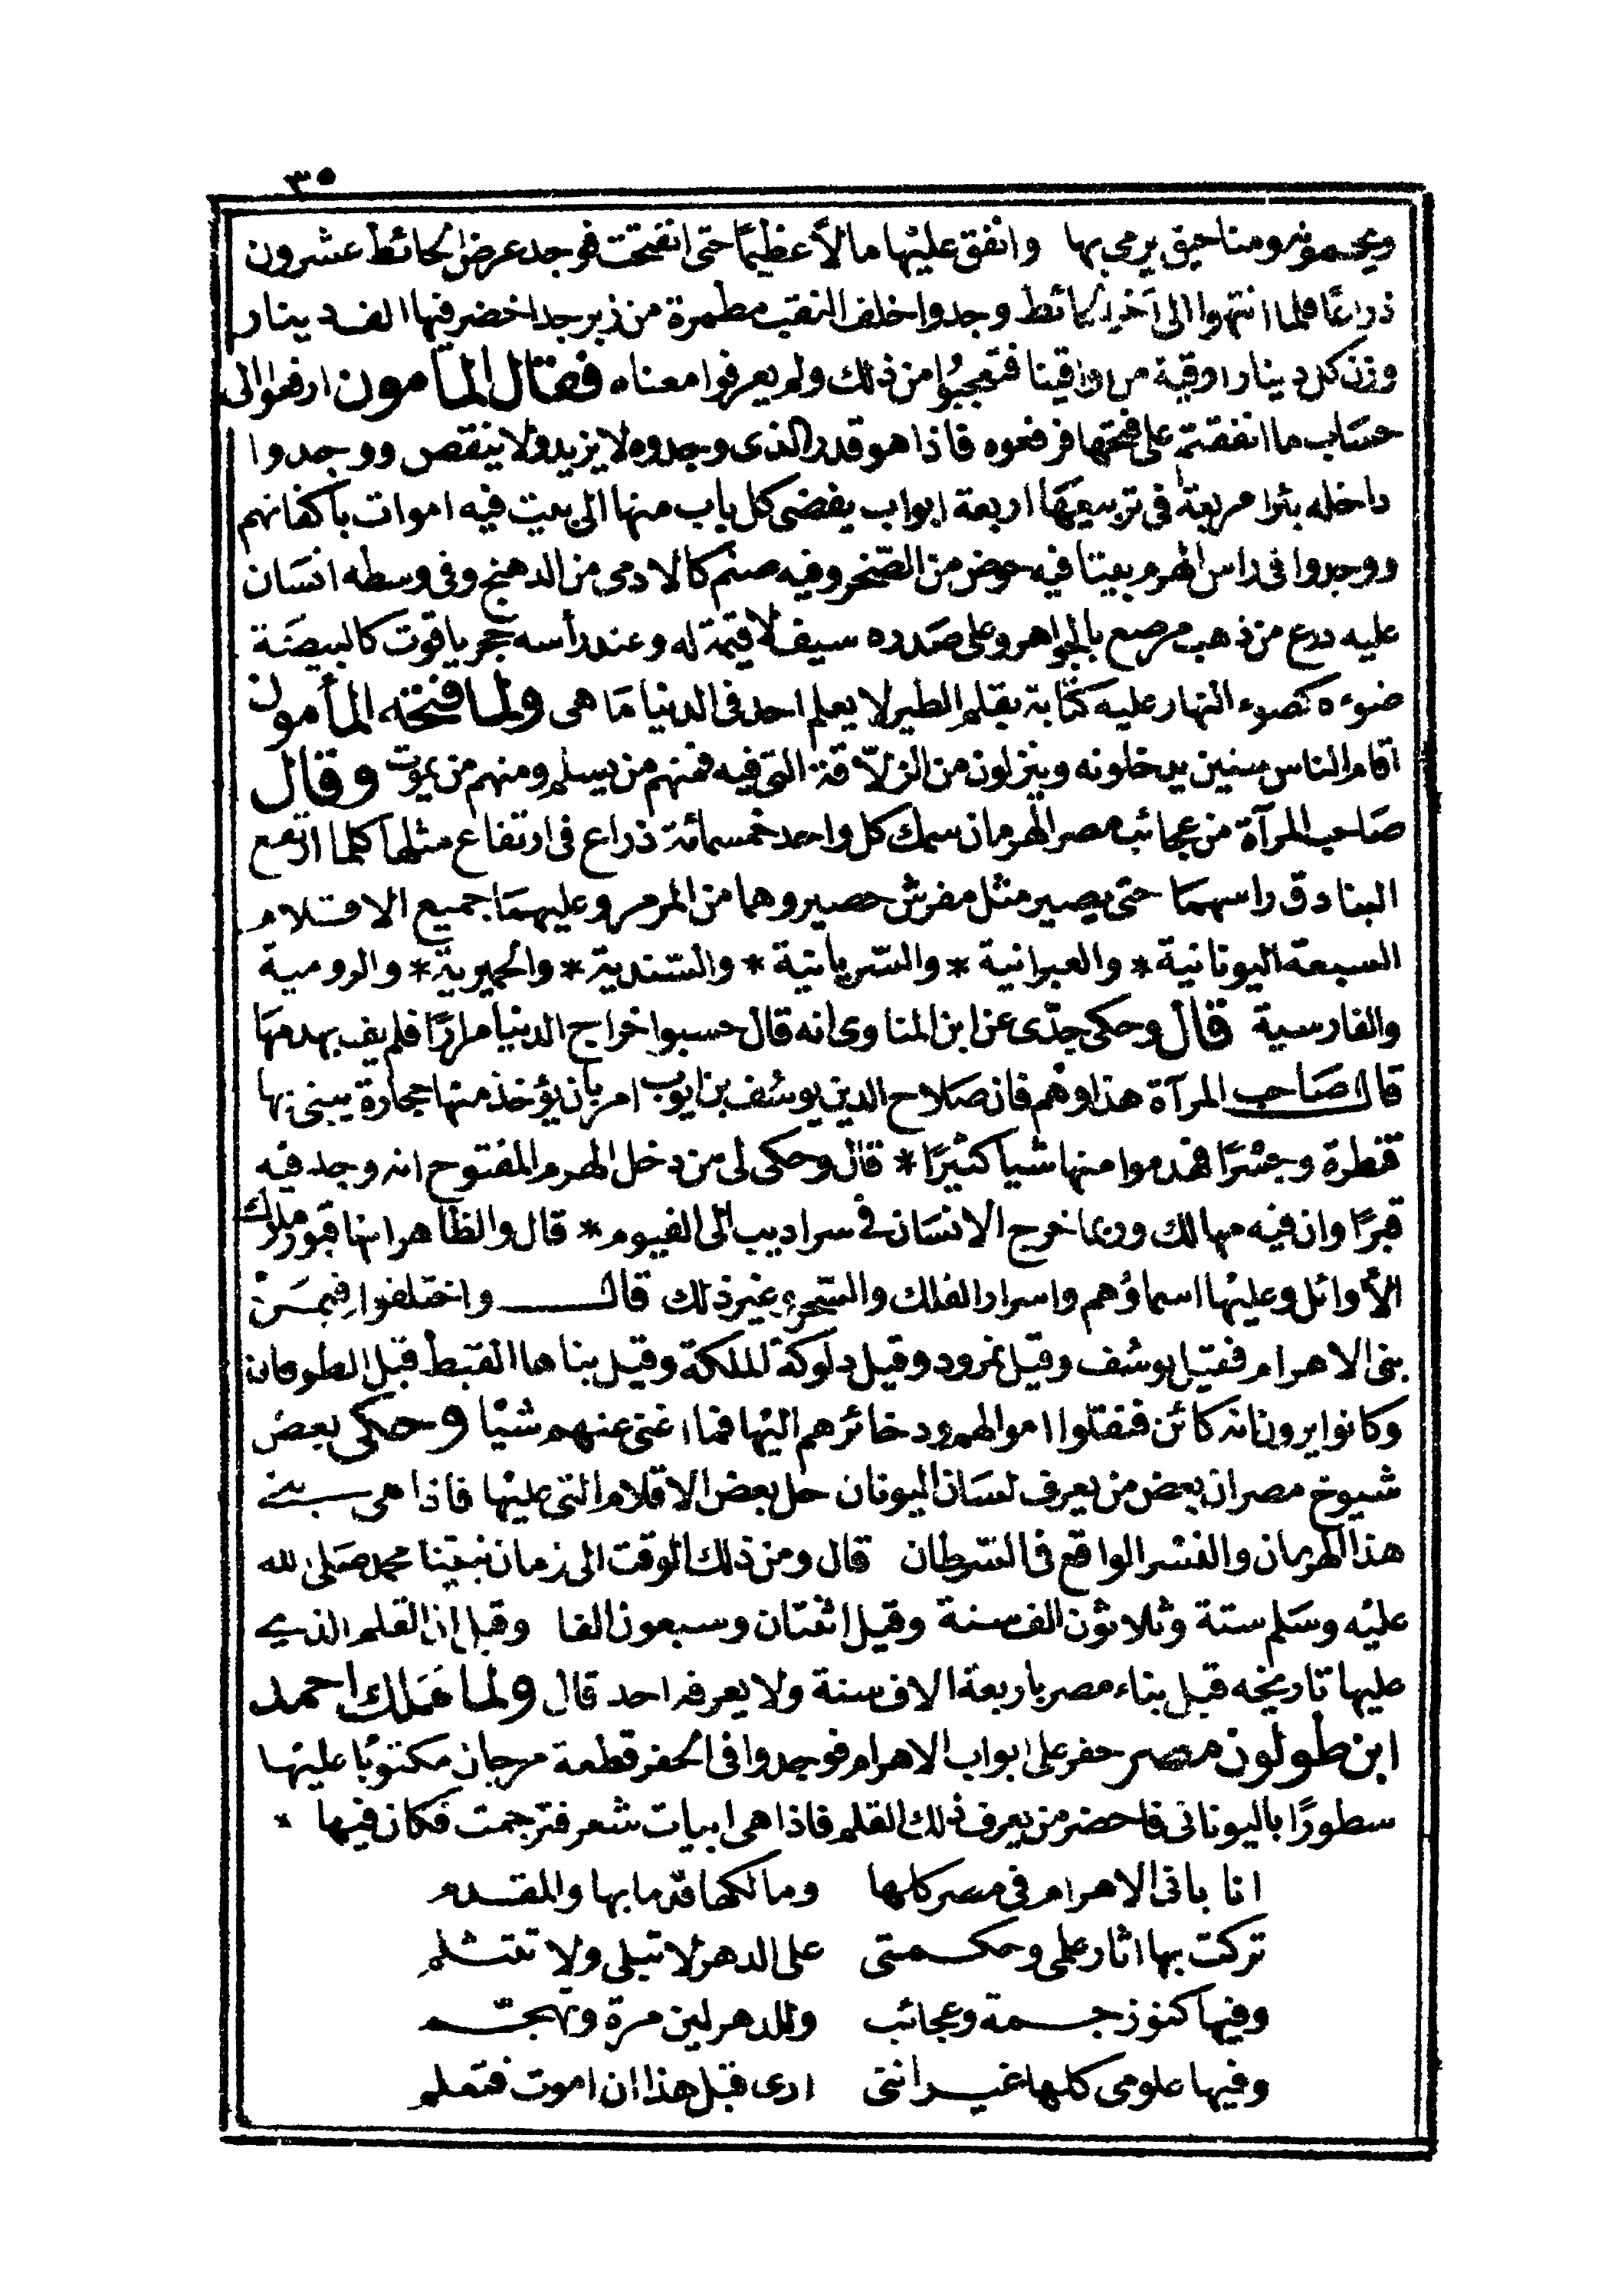 ٣٥
ويحمونه ومناجيق يرمى بها وانفق عليها مالاً عظيمًا حتى انفتحت فوجد عرض الحائط عشرون
ذراعًا فلما انتهوا الى آخر الحائط وجدوا خلف النقب مطمرة من زبرجد اخضر فيها الف دينار
وزن كل دينار اوقية من اواقينا فتعجبوا من ذلك ولم يعرفوا معناه فقال المأمون ارفعوا الى
حساب ما انفقتم على فتحها فرفعوه فاذا هو قدر الذى وجدوه لا يزيد ولا ينقص ووجدوا
داخله بئرا مربعة فى تربيعها اربعة ابواب يفضى كل باب منها الى بيت فيه اموات باكفانهم
ووجدوا فى راس الهرم بيتا فيه حوض من الصخر وفيه صنم كالادمى من الدهنج وفى وسطه انسان
عليه درع من ذهب مرصع بالجواهر وعلى صدره سيف لا قيمة له وعند رأسه حجر ياقوت كالبيضة
ضوءه كضوء النهار عليه كتابة بقلم الطير لا يعلم احد فى الدنيا ما هى ولما فتحه المأمون
اقام الناس سنين يدخلونه وينزلون من الزلاقة التى فيه فمنهم من يسلم ومنهم من يموت وقال
صاحب المرآة من عجائب مصر الهرمان سمك كل واحد خمسمائة ذراع فى ارتفاع مثلها كلما ارتفع
البنا دق راسهما حتى يصير مثل مفرش حصير وهما من المرمر وعليهما جميع الاقلام
السبعة اليونانية * والعبرانية * والسريانية * والسندية * والحميرية * والرومية
والفارسية قال وحكى جدّى عن ابن المناوى انه قال حسبوا خراج الدنيا مرارًا فلم يف بهدمها
قال صاحب المرآة هذا وهم فان صلاح الدين يوسف بن ايوب امر بان يؤخذ منها حجارة يبنى بها
قنطرة وجسرًا فهدموا منها شيا كثيرًا * قال وحكى لى من دخل الهرم المفتوح انه وجد فيه
قبرًا وان فيه مهالك وربما خرج الانسان فى سراديب الى الفيوم * قال والظاهر انها قبور ملوك
الأوائل وعليها اسماؤهم واسرار الفلك والسحر وغير ذلك قال واختلفوا فيمن
بنى الاهرام فقيل يوسف وقيل نمرود وقيل دلوكة الملكة وقيل بناها القبط قبل الطوفان
وكانوا يرون انه كائن فنقلوا اموالهم وذخائرهم اليها فما اغنى عنهم شيًا وحكى بعض
شيوخ مصر ان بعض من يعرف لسان اليونان حل بعض الاقلام التى عليها فاذا هى بنى
هذا الهرمان والنسر الواقع فى السرطان قال ومن ذلك الوقت الى زمان نبينا محمد صلى الله
عليه وسلم ستة وثلاثون الف سنة وقيل اثنتان وسبعون الفا وقيل ان القلم الذى
عليها تاريخه قبل بناء مصر باربعة الاف سنة ولا يعرفه احد قال ولما ملك احمد
ابن طولون مصر حفر على ابواب الاهرام فوجدوا فى الحفر قطعة مرجان مكتوبًا عليها
سطورًا باليونانى فاحضر من يعرف ذلك القلم فاذا هى ابيات شعر فترجمت فكان فيها *
انا بانى الاهرام فى مصر كلها ومالكها قدما بها والمقدم
تركت بها اثار علمى وحكمتى على الدهر لا تبلى ولا تتثلم
وفيها كنوز جمة وعجائب وللدهر لين مرة وتهجم
وفيها علومى كلها غير اننى ارى قبل هذا ان اموت فتعلم